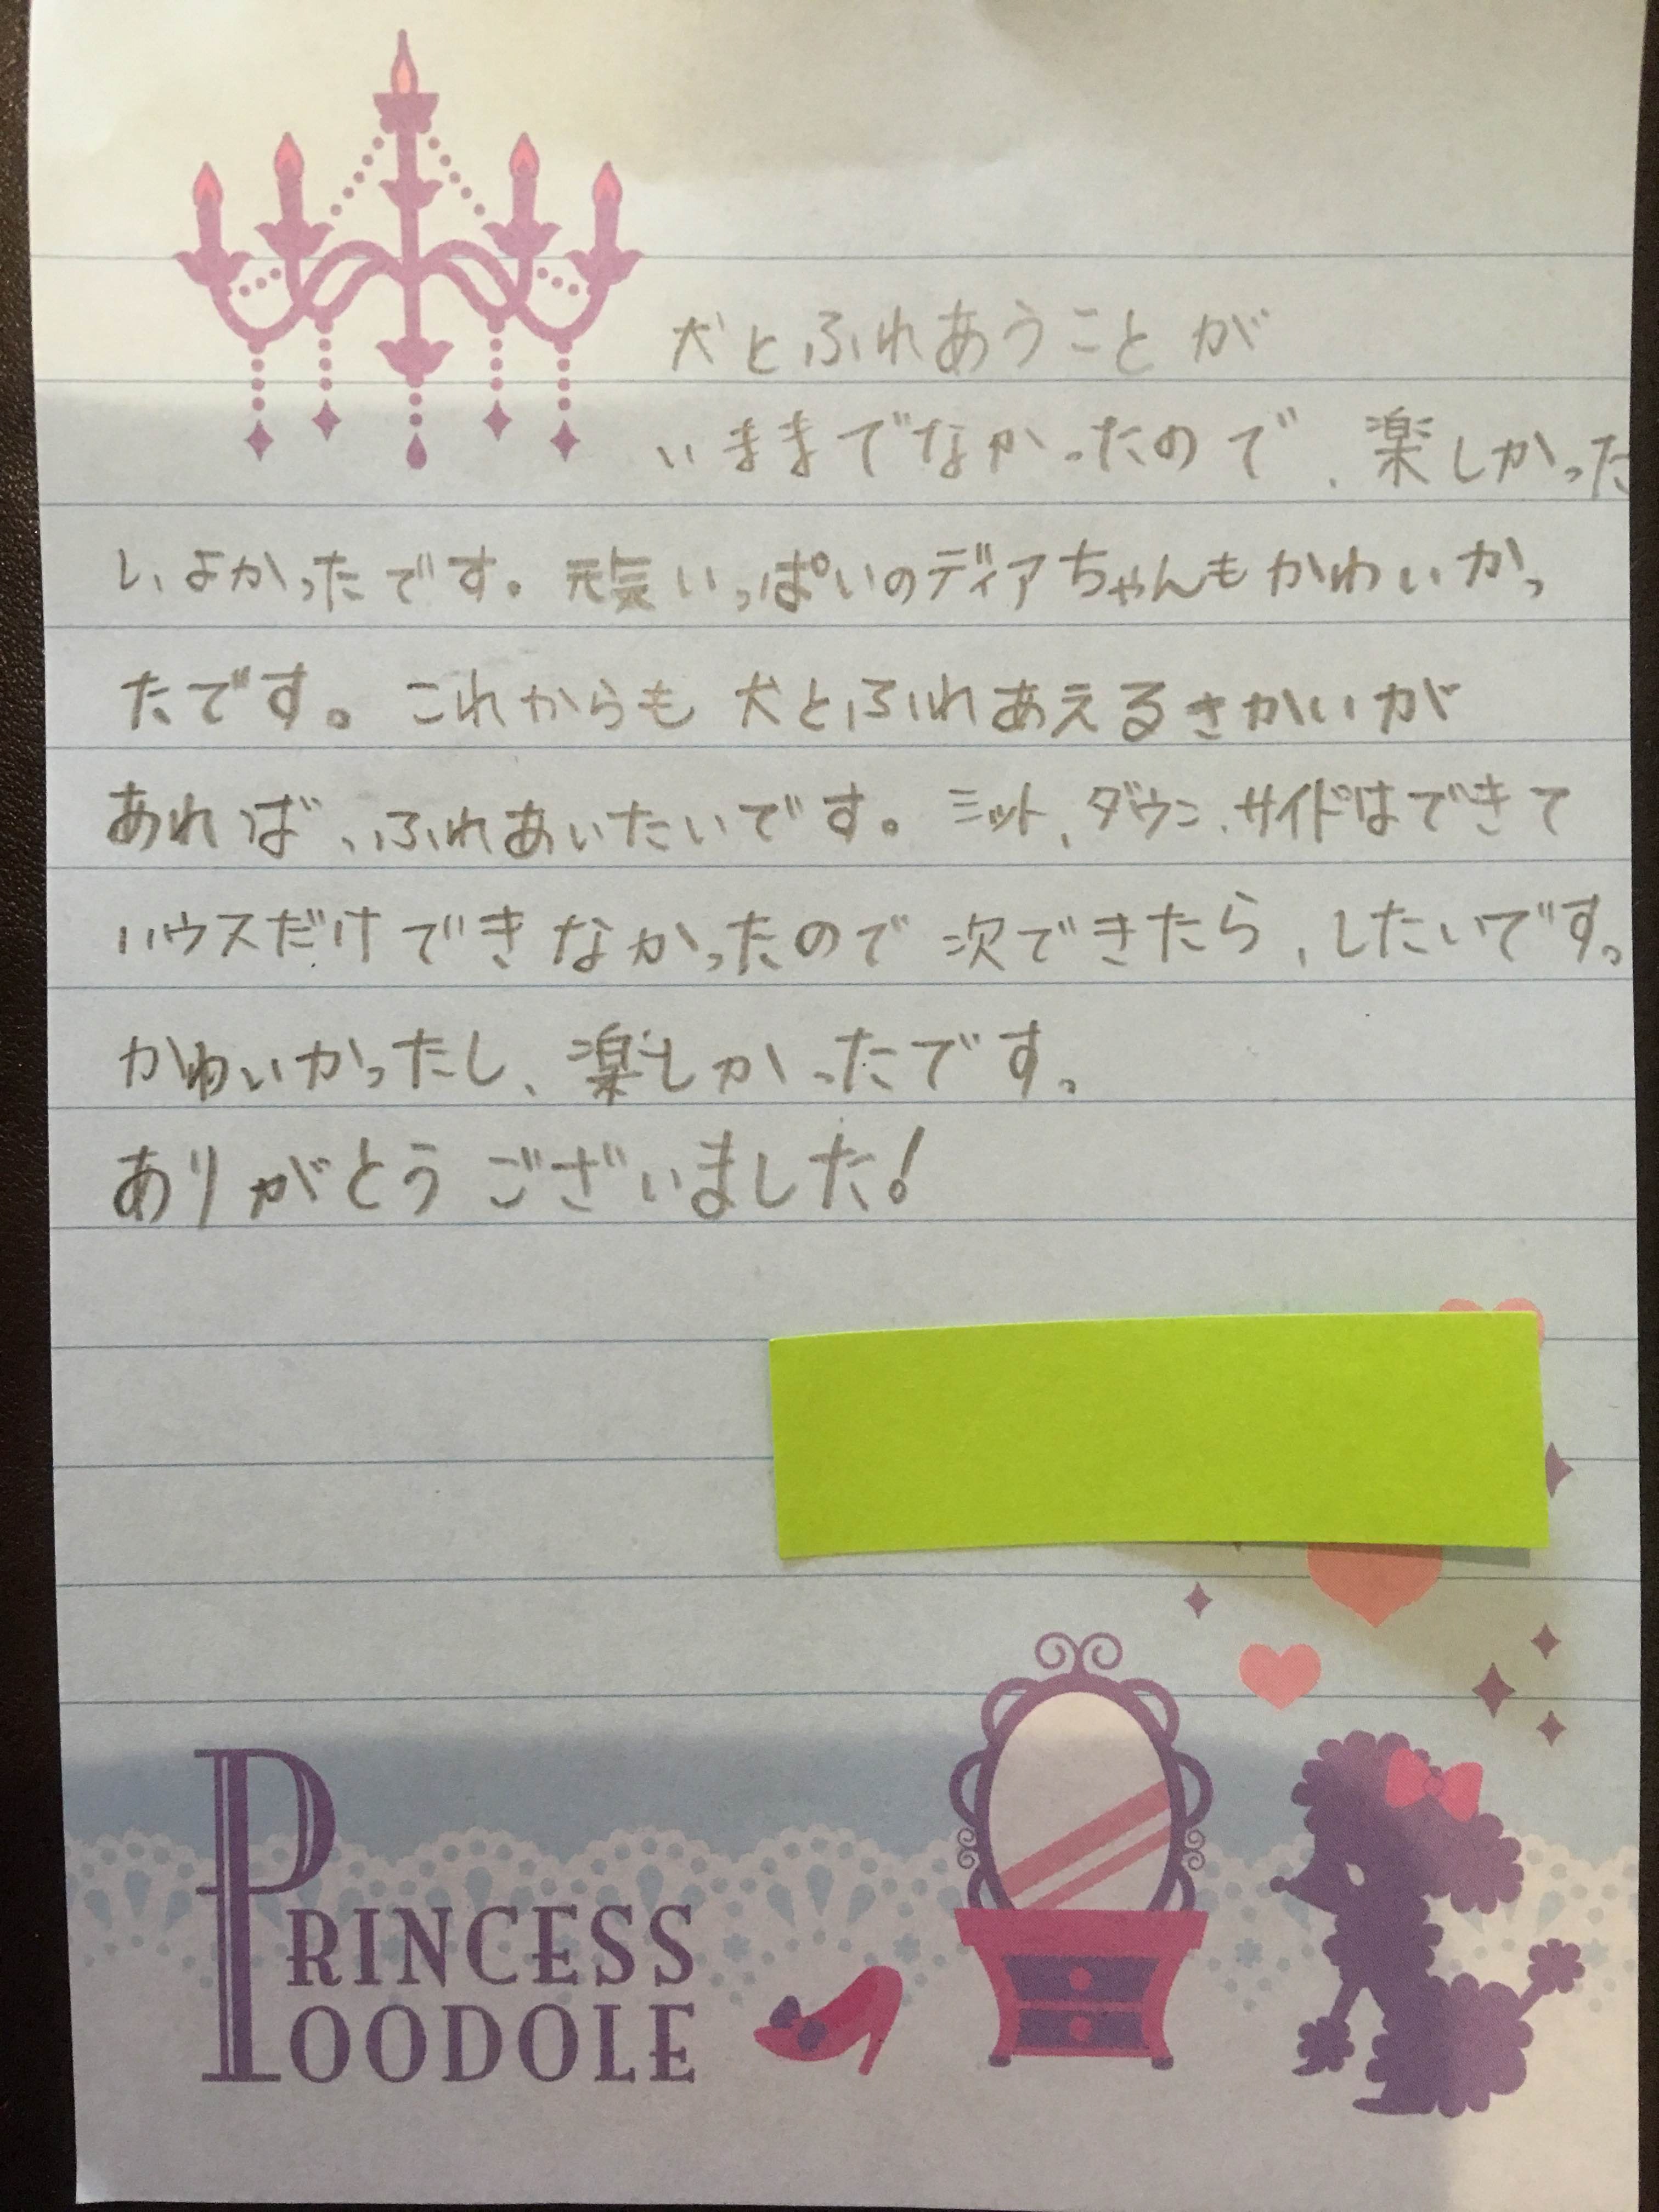 犬とふれあうことが
いままでなかったので、楽しかった
し、よかったです。元気いっぱいのディアちゃんもかわいかっ
たです。これからも犬とふれあえるきかいが
あれば、ふれあいたいです。ミット、ダウン、サイドはできて
ハウスだけできなかったので次できたら、したいです。
かわいかったし、楽しかったです。
ありがとうございました!
PRINCESS
POODOLE